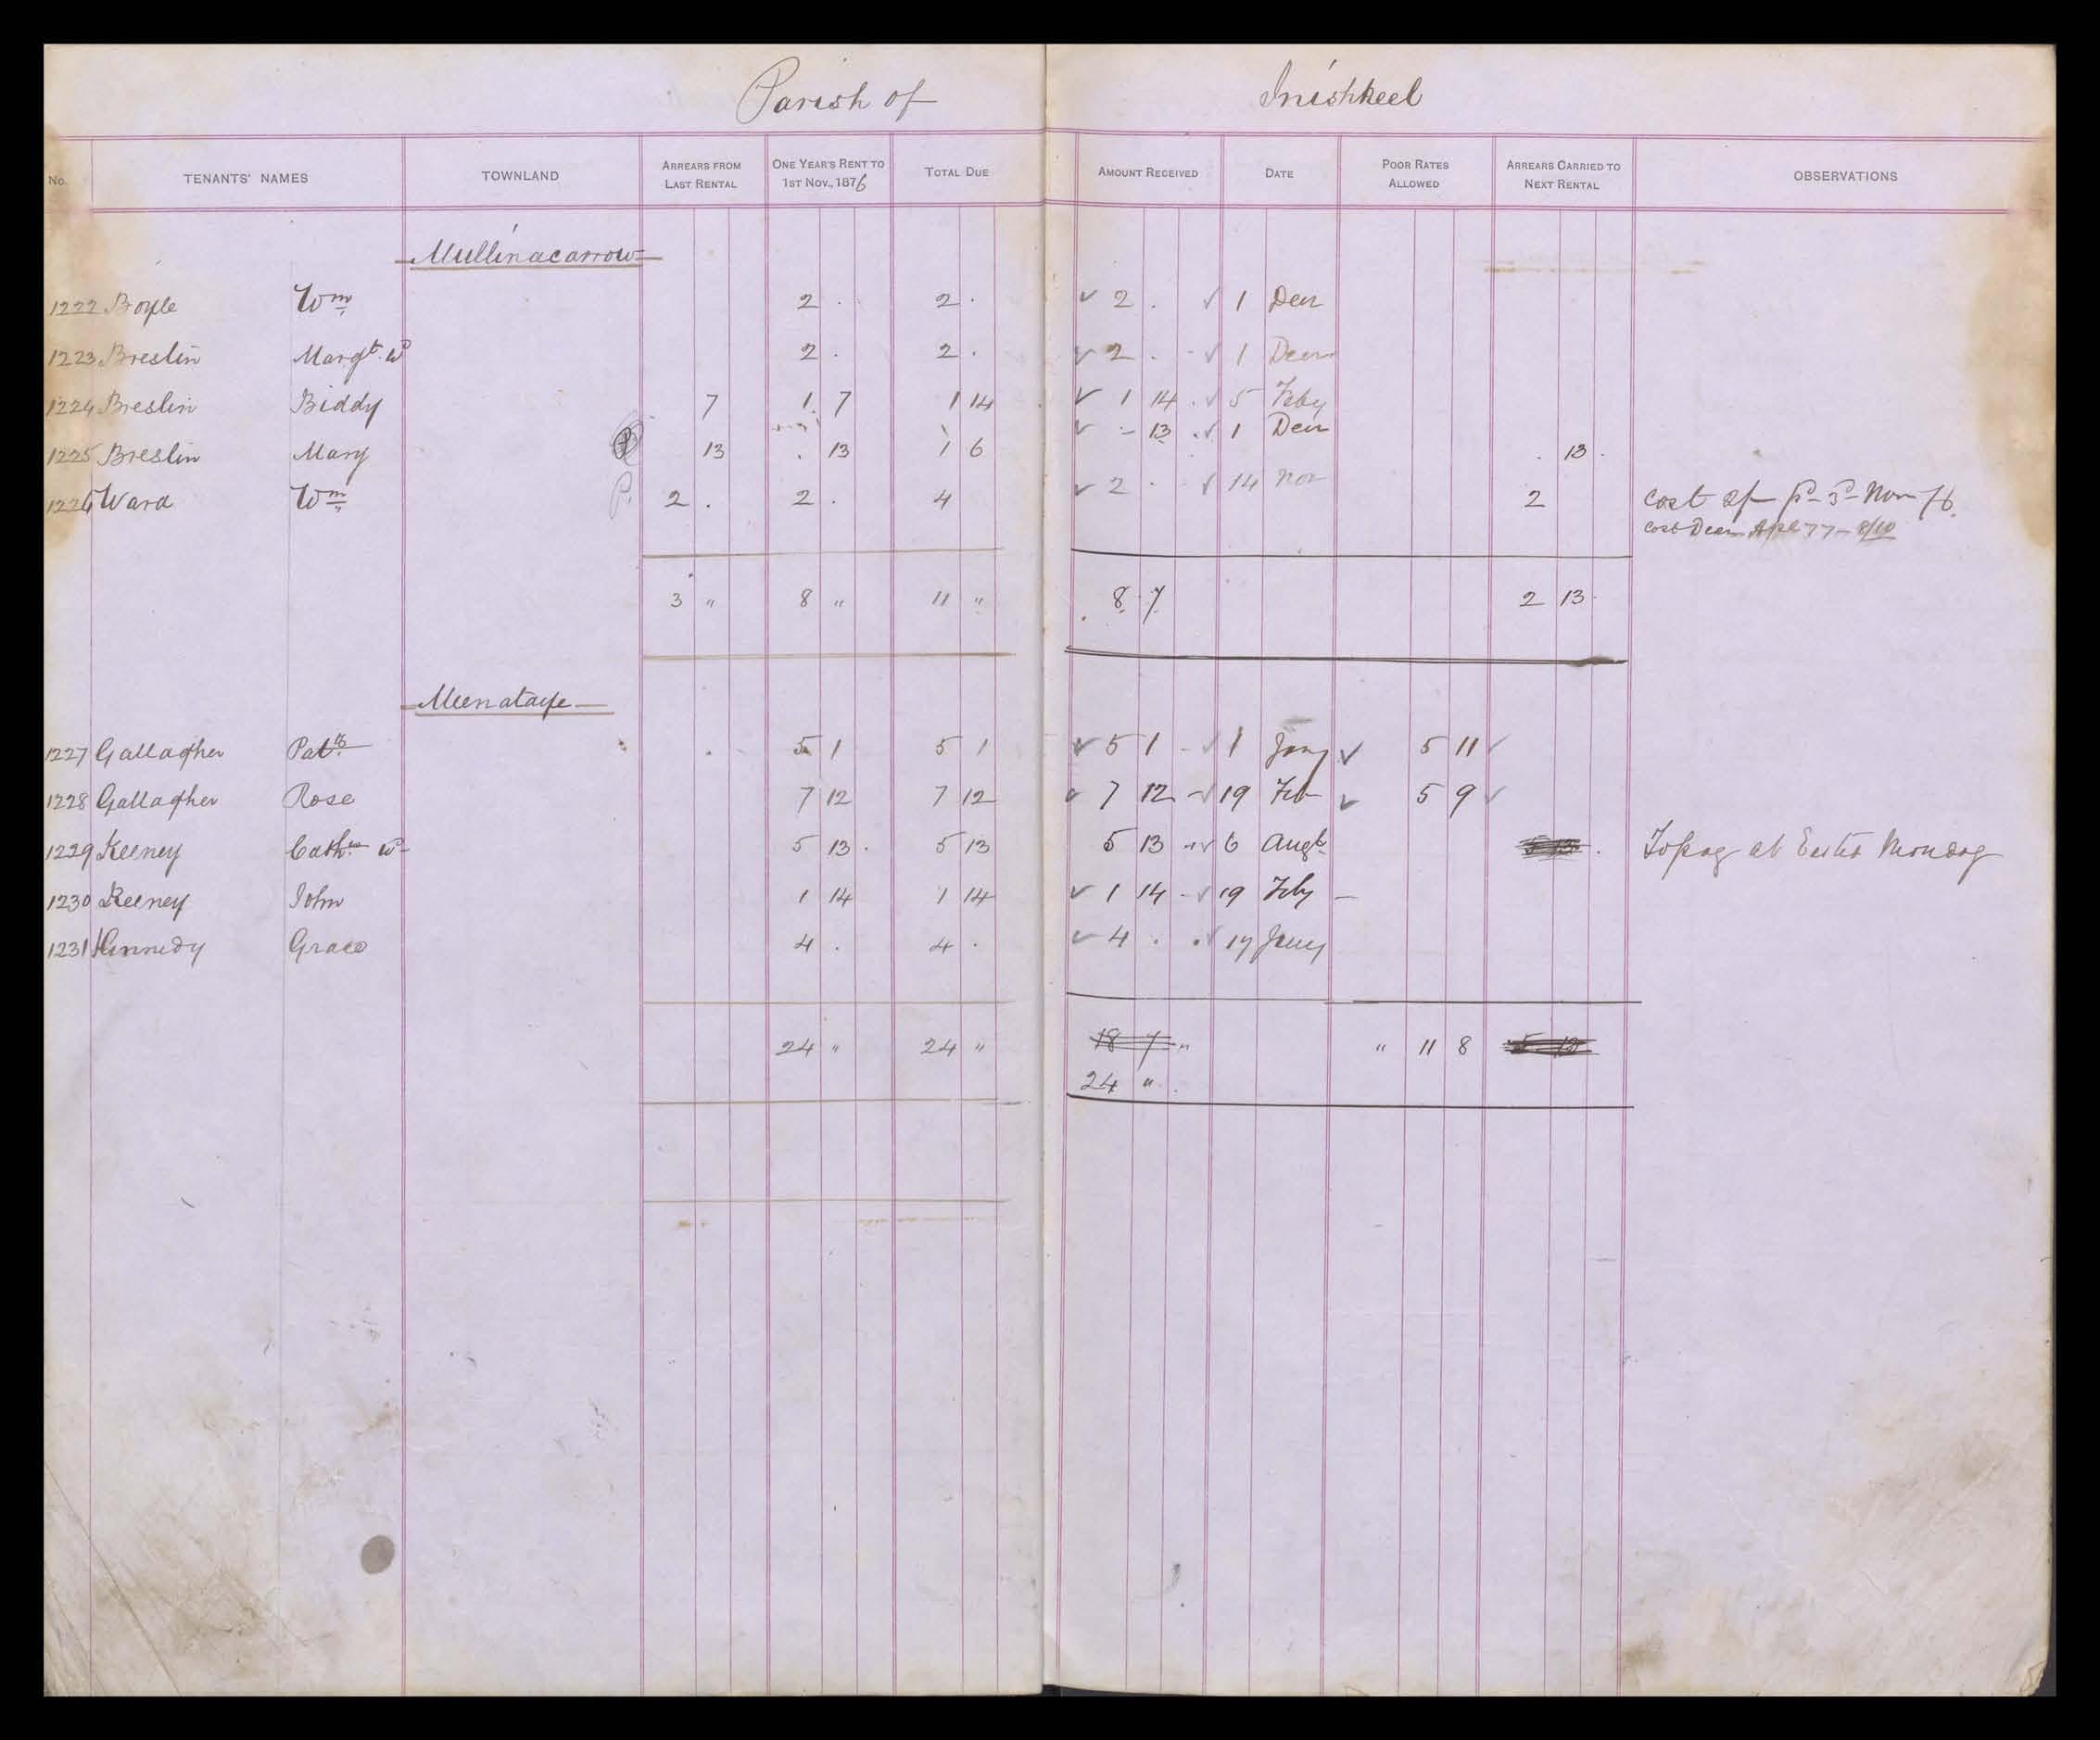 Parish of Inishkeel
No. TENANTS' NAMES TOWNLAND ARREARS FROM LAST RENTAL ONE YEAR'S RENT TO 1ST NOV., 1876 TOTAL DUE AMOUNT RECEIVED DATE POOR RATES ALLOWED ARREARS CARRIED TO NEXT RENTAL OBSERVATIONS
Mullinacarrow
1222 Boyle Wm 2 . 2 . ✓ 2 . ✓ 1 Decr
1223 Breslin Margt. wd 2 . 2 . ✓ 2 . - ✓ 1 Decr
1224 Breslin Biddy 7 1 . 7 1 14 ✓ 1 14 . ✓ 5 Feby
1225 Breslin Mary 13 . 13 1 6 ✓ - 13 . ✓ 1 Decr . 13 .
1226 Ward Wm 2 . 2 . 4 ✓ 2 . ✓ 14 Nov 2 Cost of pd 3d Nov 76.
Cost Decr 77
3 " 8 " 11 " 8 7 2 13
Meenataye
1227 Gallagher Patk 5 1 5 1 ✓ 5 1 - ✓ 1 Jany ✓ 5 11 ✓
1228 Gallagher Rose 7 12 7 12 ✓ 7 12 - ✓ 19 Feb ✓ 5 9 ✓
1229 Keeney Cathne wd 5 13 . 5 13 5 13 " ✓ 6 Augt. 5 13 . To pay at Monday
1230 Keeney John 1 14 1 14 ✓ 1 14 - ✓ 19 Feby -
1231 Kennedy Grace 4 . 4 . ✓ 4 . . ✓ 17 Jany
24 " 24 " 18 7 " " 11 8 5 13
24 " .